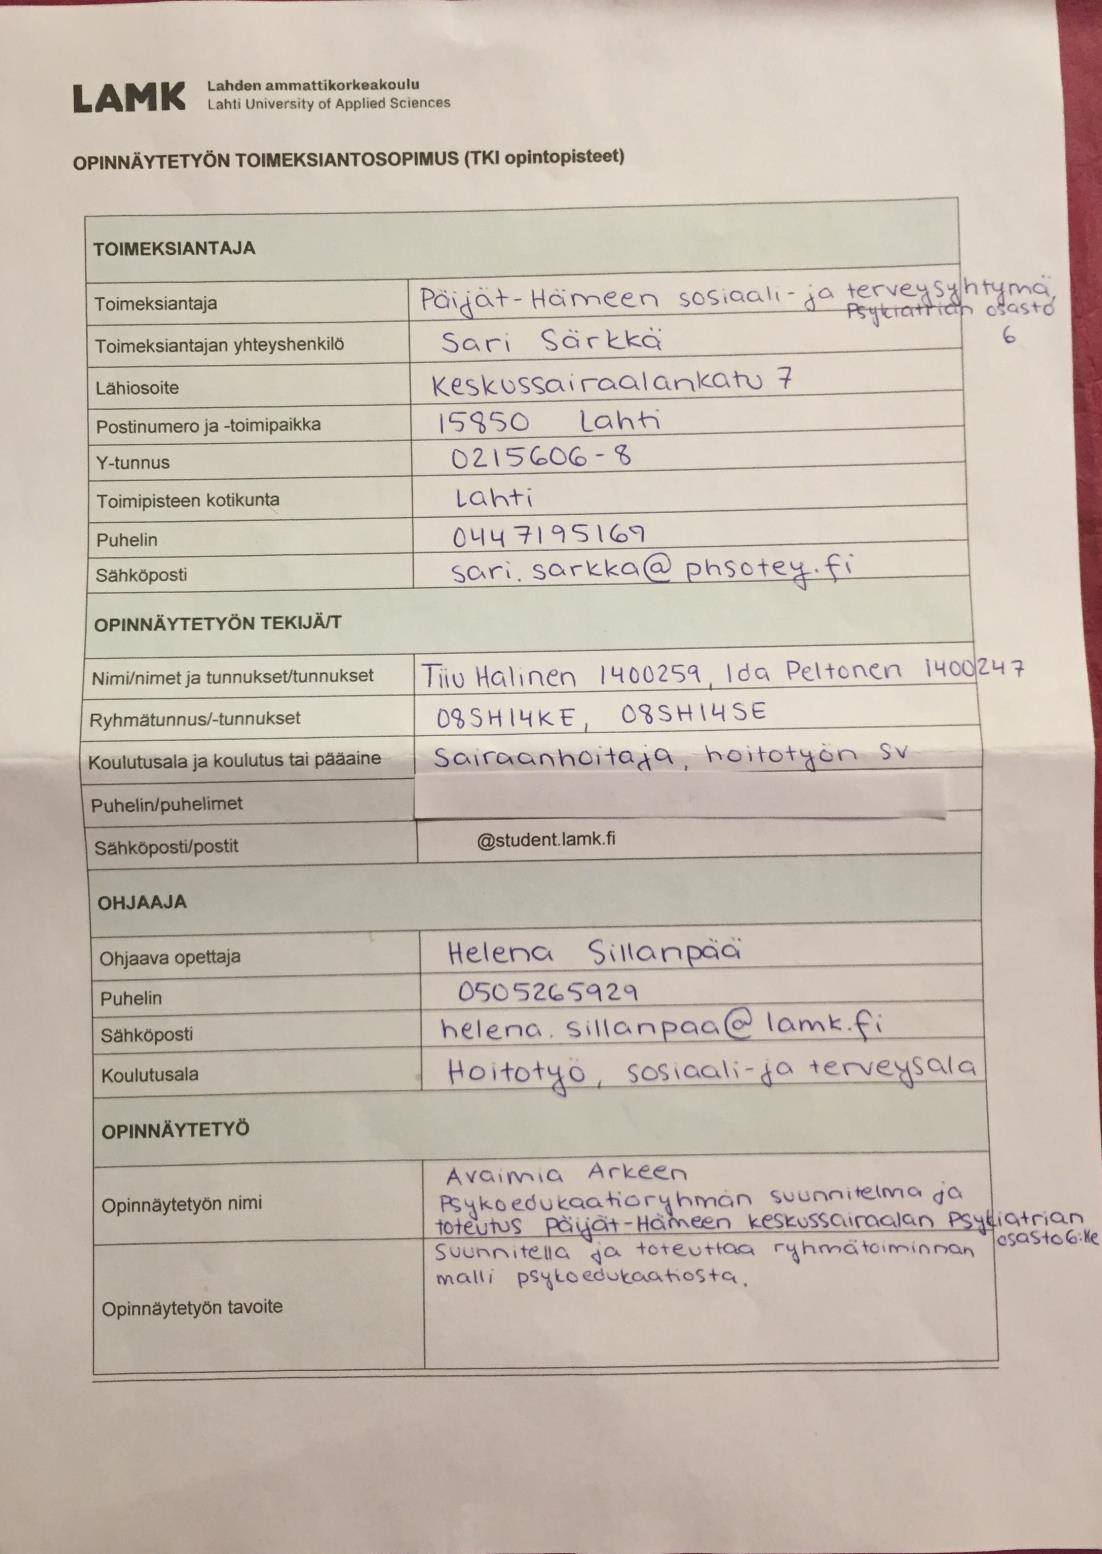 LAMK Lahden ammattikorkeakoulu
Lahti University of Applied Sciences
OPINNÄYTETYÖN TOIMEKSIANTOSOPIMUS (TKI opintopisteet)
TOIMEKSIANTAJA
Toimeksiantaja Päijät-Hämeen sosiaali- ja terveysyhtymä,
Psykiatrian osasto
6
Toimeksiantajan yhteyshenkilö Sari Särkkä
Lähiosoite Keskussairaalankatu 7
Postinumero ja -toimipaikka 15850 Lahti
Y-tunnus 0215606-8
Toimipisteen kotikunta Lahti
Puhelin 0447195169
Sähköposti sari.sarkka@phsotey.fi
OPINNÄYTETYÖN TEKIJÄ/T
Nimi/nimet ja tunnukset/tunnukset Tiiu Halinen 1400259, Ida Peltonen 1400247
Ryhmätunnus/-tunnukset 08SH14KE, 08SH14SE
Koulutusala ja koulutus tai pääaine Sairaanhoitaja, hoitotyön sv
Puhelin/puhelimet
Sähköposti/postit @student.lamk.fi
OHJAAJA
Ohjaava opettaja Helena Sillanpää
Puhelin 0505265929
Sähköposti helena.sillanpaa@lamk.fi
Koulutusala Hoitotyö, sosiaali-ja terveysala
OPINNÄYTETYÖ
Opinnäytetyön nimi Avaimia Arkeen
Psykoedukaatioryhmän suunnitelma ja
toteutus Päijät-Hämeen keskussairaalan Psykiatrian
osasto6:lle
Opinnäytetyön tavoite Suunnitella ja toteuttaa ryhmätoiminnan
malli psykoedukaatiosta.